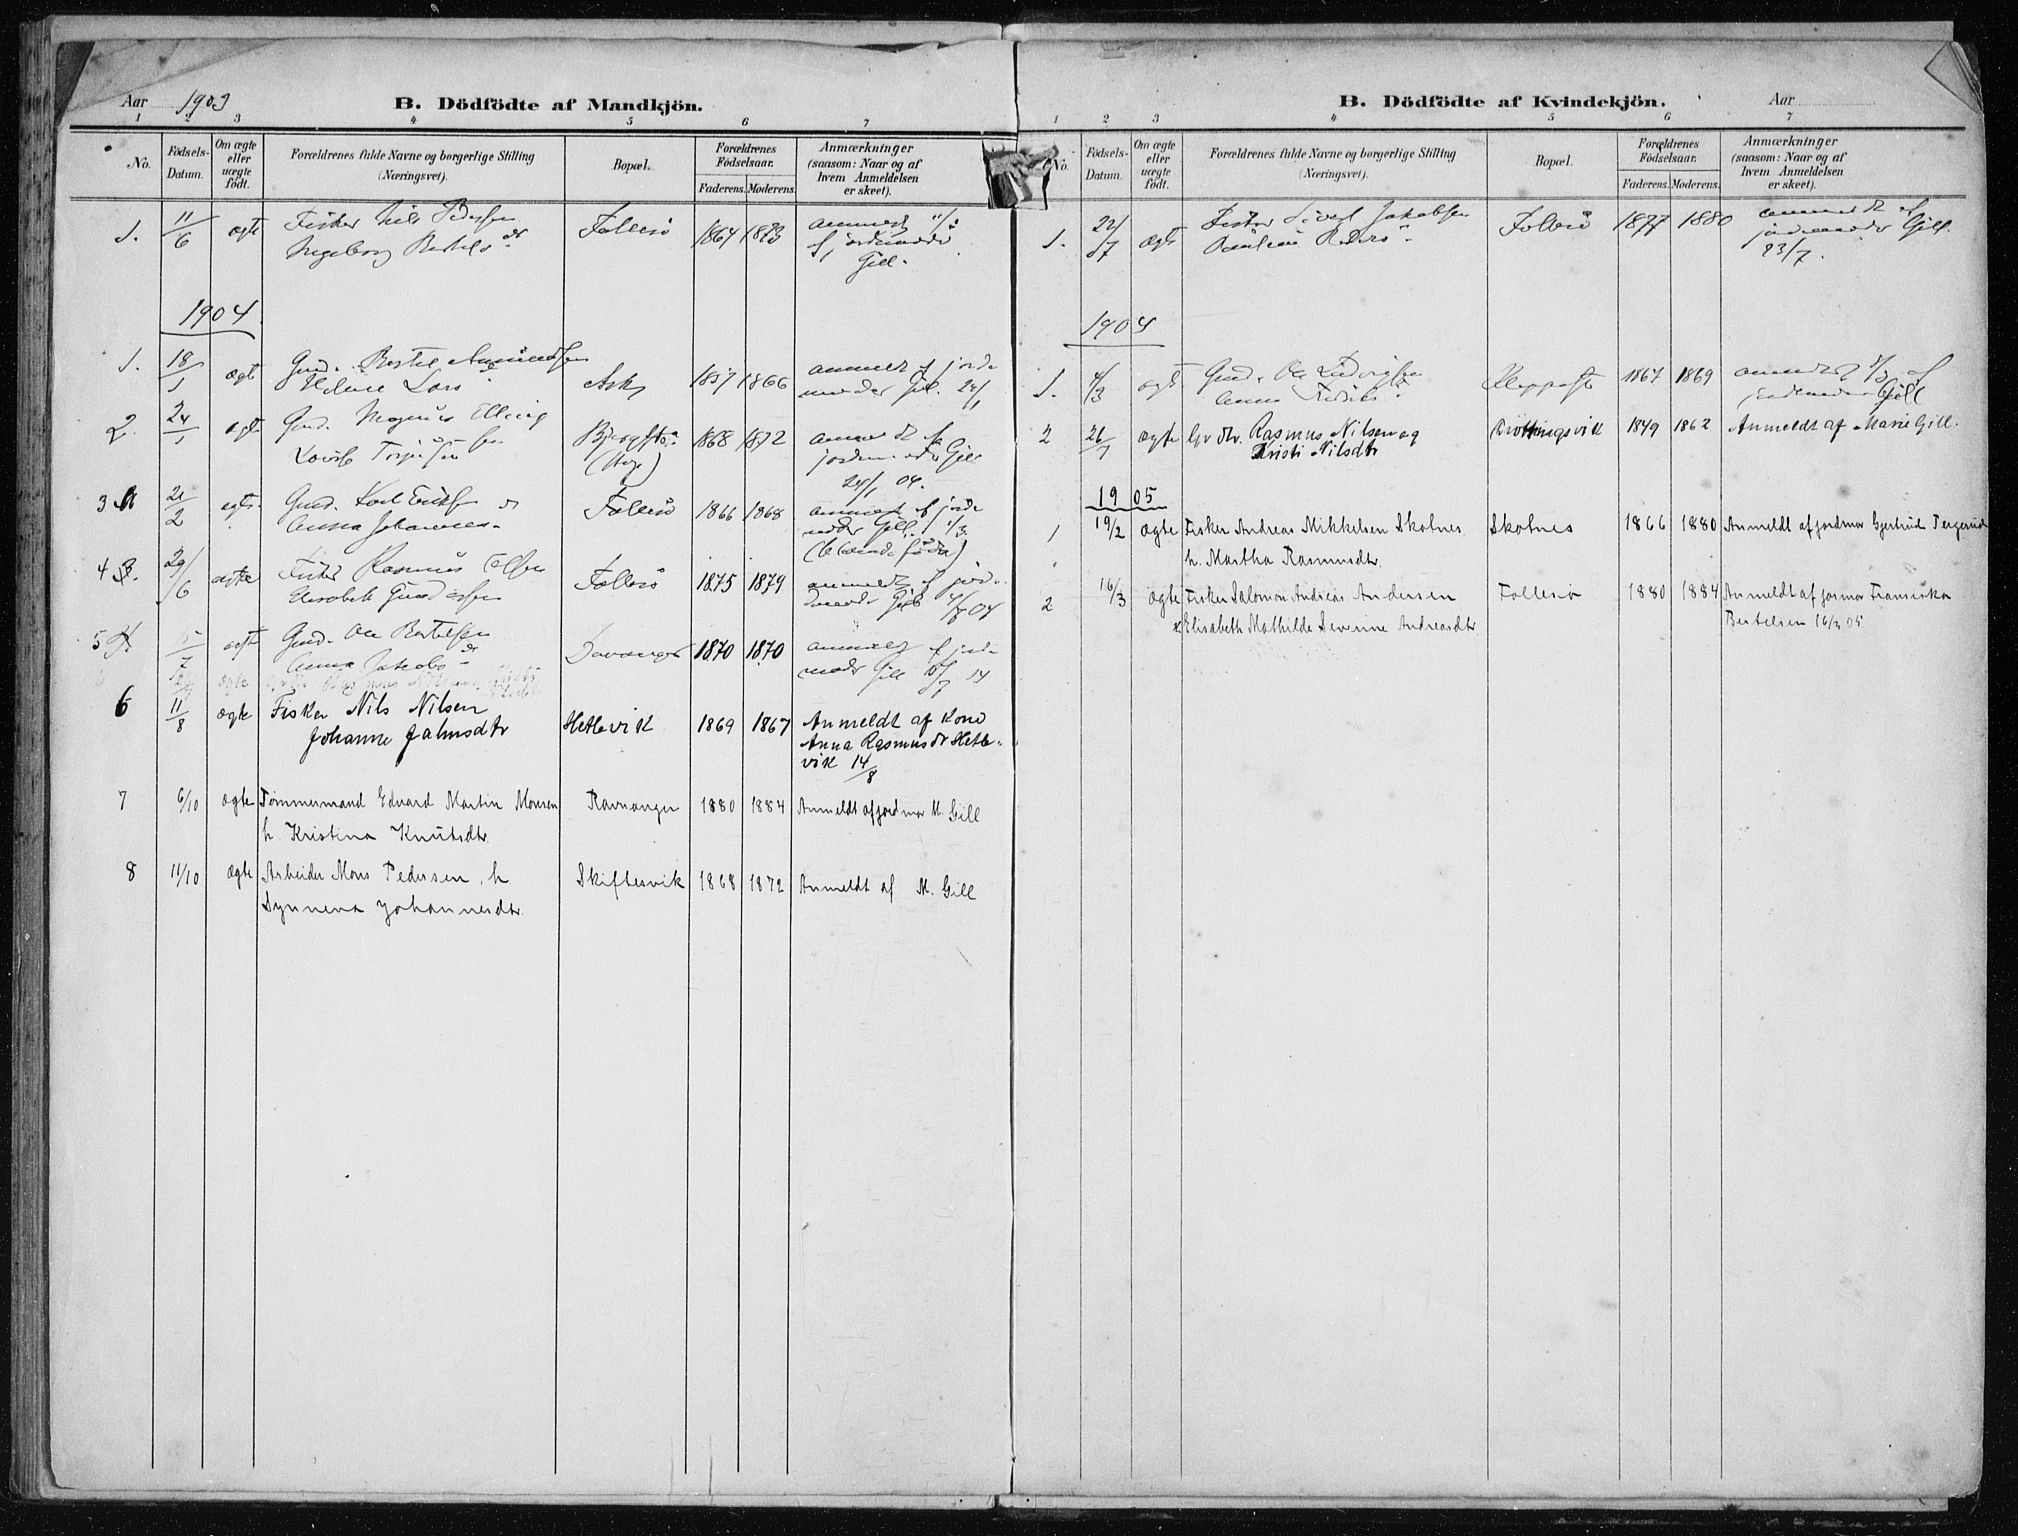 Aar 1903
B. Dödfödte af Mandkjön.
1 2 3 4 5 6 7
No.
Födsels-Datum.
Om ægte eller uægte födt.
Forældrenes fulde Navne og borgerlige Stilling (Næringsvei).
Bopæl.
Forældrenes Födselsaar.
Faderens. Moderens.
Anmærkninger (saasom: Naar og af hvem Anmeldelsen er skeet).
1. 11/6 ægte Fisker Nils Pedersen Follesö 1864 1873 anmeldt
Ingeborg Bertelsdr af jordmoder
Gill.
1904.
1. 18/1 ægte Gmd. Bertel Ask 1857 1866 anmeldt af jorde
Helene Larsdr moder Gill. 24/1
2. 24/1 ægte Gmd. Magnus Elling 1868 1872 anmeldt af
jordemoder Gill
24/1 04.
3 21/2 ægte Gmd. Karl Eriksen Follesö 1866 1868 anmeldt af jorde
Anna Johannesdr moder Gill. 1/3
4 29/6 ægte Fisker Rasmus Follesö 1875 1879 anmeldt af jorde
Elisabeth moder Gill 04
5 ægte Gmd. Ole Bertelsen Davanger 1870 1870 anmeldt af jorde
Anna Jakobsdr moder Gill
6 11/8 ægte Fisker Nils Nilsen Hetlevik 1869 1867 Anmeldt af Kone
Johanne Jahnsdtr Anna Rasmusdr Hetle-
vik 14/8
7 6/10 ægte Tømmermand Edvard Martin Monsen Ravnanger 1880 1884 Anmeldt af jordmor M. Gill
h. Kristina Knutsdtr.
8 11/10 ægte Arbeider Mons Pedersen, h Skiftesvik 1868 1872 Anmeldt af M. Gill
Synneva Johannesdtr.
B. Dödfödte af Kvindekjön.
Aar
1 2 3 4 5 6 7
No.
Födsels-Datum.
Om ægte eller uægte födt.
Forældrenes fulde Navne og borgerlige Stilling (Næringsvei).
Bopæl.
Forældrenes Födselsaar.
Faderens. Moderens.
Anmærkninger (saasom: Naar og af hvem Anmeldelsen er skeet).
1. 22/7 ægte Fisker Sivert Jakobsen Follesö 1877 1880 anmeldt af
jordemoder Gill.
23/7.
1904
1. 4/3 ægte Gmd. Ole Ludvigsen Kleppestö 1867 1869 anmeldt af
Anna jordemoder Gill
2 26/7 ægte Rasmus Nilsen og Drottningsvik 1849 1862 Anmeldt af Marie Gill.
Kristi Nilsdtr
1905
1 10/2 ægte Fisker Andreas Mikkelsen Skotnes Skotnes 1866 1880 Anmeldt af jordmor Gjertrud
h. Martha Rasmusdtr.
2 16/3 ægte Fisker Salomon Andreas Andersen Follesö 1880 1884 Anmeldt af jormor Fransiska
Elisabeth Mathilde Severine Andreasdtr Bertelsen 16/3 05